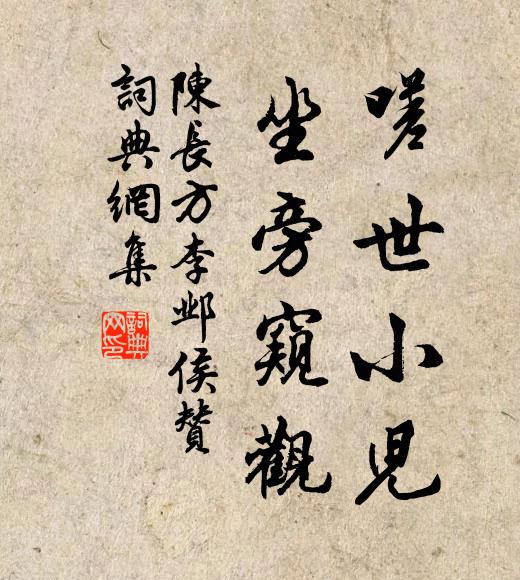 嗟世小児
坐旁窺觀
陳長方李鄴侯贊
詞典網集
詞典
网印